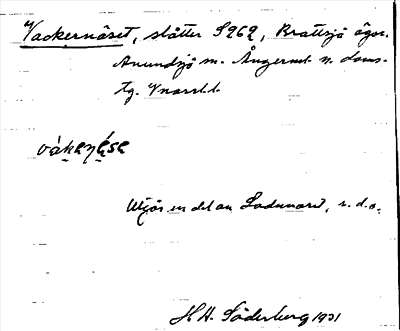 Vackernäset, slåtter S969, Brattsjö ägor.
Anundsjö sn. Ångerml. n. doms-
tg. Vnorrl. l.
våkenése
Utgör en del av Ladunäset, s. d. o.
H. H. Söderberg 1931